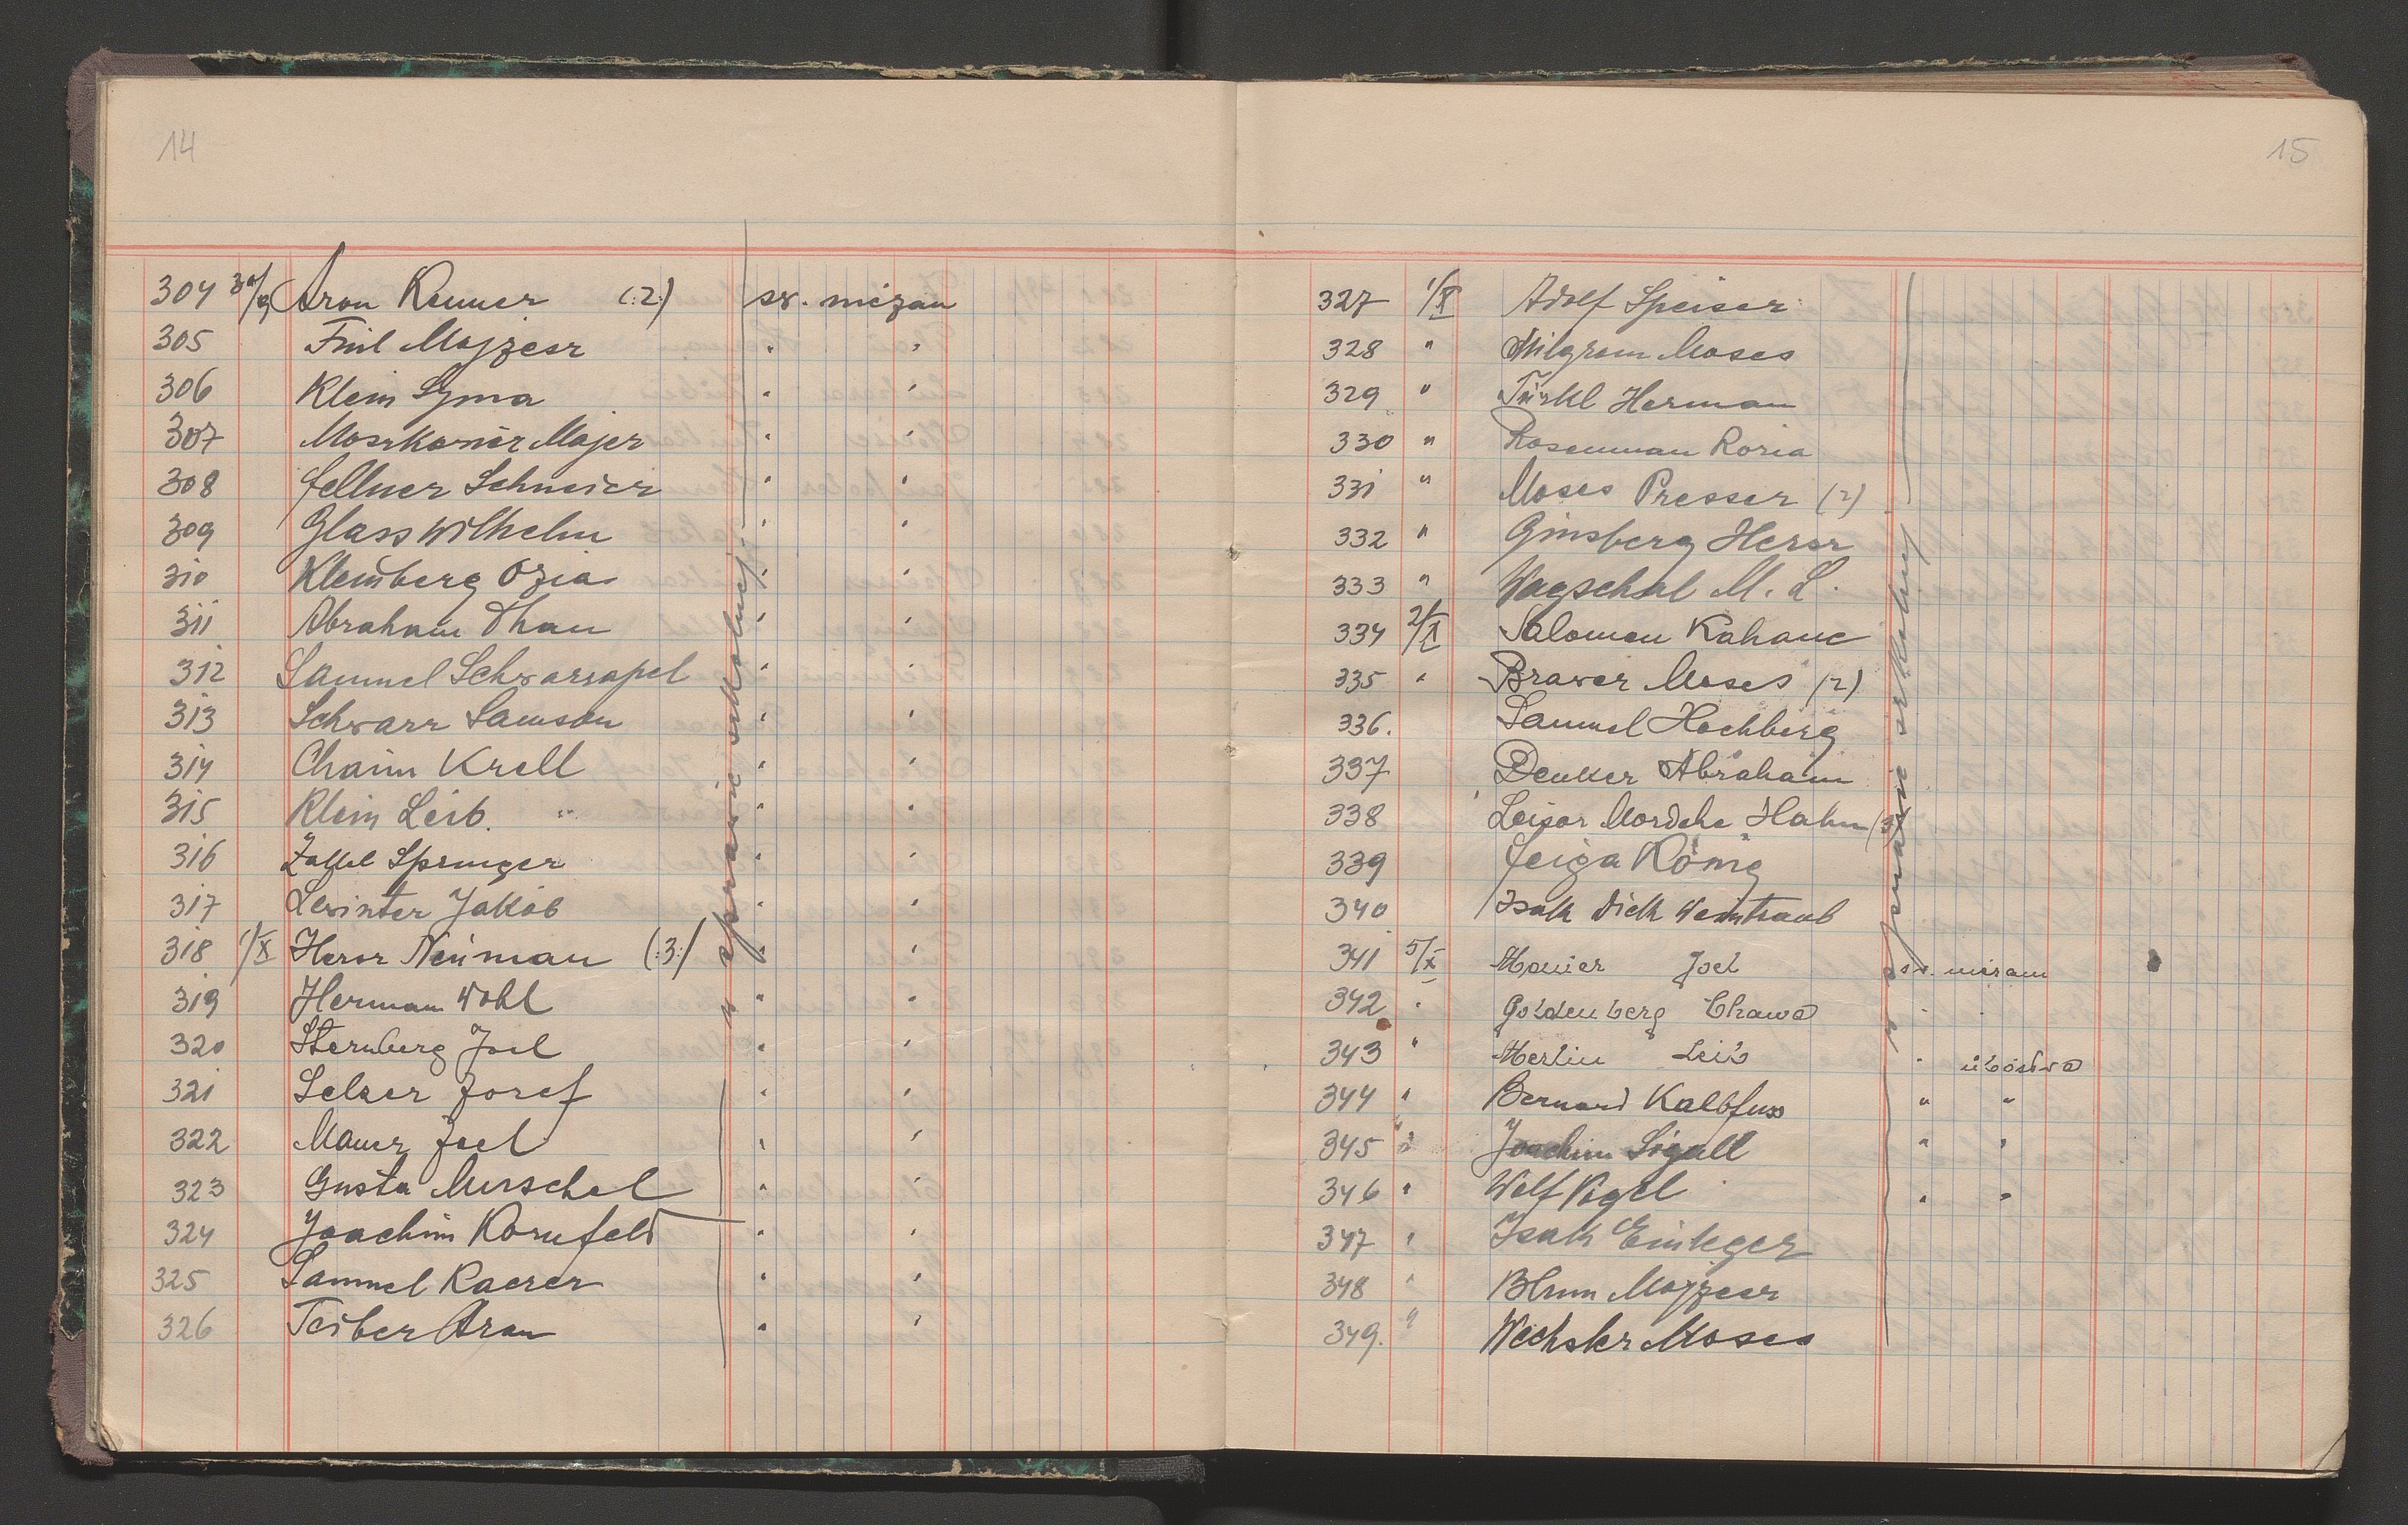 14
304 30/9 Aron Renner (:2:) św. niezam
305 Finl Mojżesz " "
306 Klein Syma " "
307 Moszkowicz Majer " "
308 Fellner Schneier " "
309 Glass Wilhelm " "
310 Kleinberg Ozia " "
311 Abraham Than " "
312 Samuel Schwarzapel " "
313 Schwarz Samson " "
314 Chaim Krell " "
315 Klein Leib. " "
316 Springer " "
317 Lewinter Jakób " "
318 1/X Hersz Neiman (:3:) " "
319 Herman Wohl " "
320 Sternberg Joel " "
321 Selzer Josef " "
322 Maner Joel " "
323 Gusta Murschel " "
324 Joachim Kornfeld " "
325 Samuel Kaerer " "
326 Teiber Aron " "
w sprawie szkolnej
15
327 1/X Adolf Speiser
328 " Milgrom Moses
329 " Türkl Herman
330 " Rosenman Rozia
331 " Moses Presser (2)
332 " Ginsberg Hersz
333 " Wagschal M. L.
334 2/X Salomon Kahane
335 " Brawer Moses (2)
336. Samuel Hochberg
337 Denker Abraham
338 Leisor Mordche Hahn (3)
339 Feiga König
340 Isak Dick Weintraub
341 5/X Joel św. niezam
342 " Goldenberg Chawa " "
343 " Merlin Leib " ubóstwa
344 " Bernard Kalbfuss " "
345 " Joachim Sigall " "
346 " Wolf Vogel " "
347 " Isak Einleger
348 " Blum Mojżesz
349. " Wechsler Moses
w sprawie szkolnej